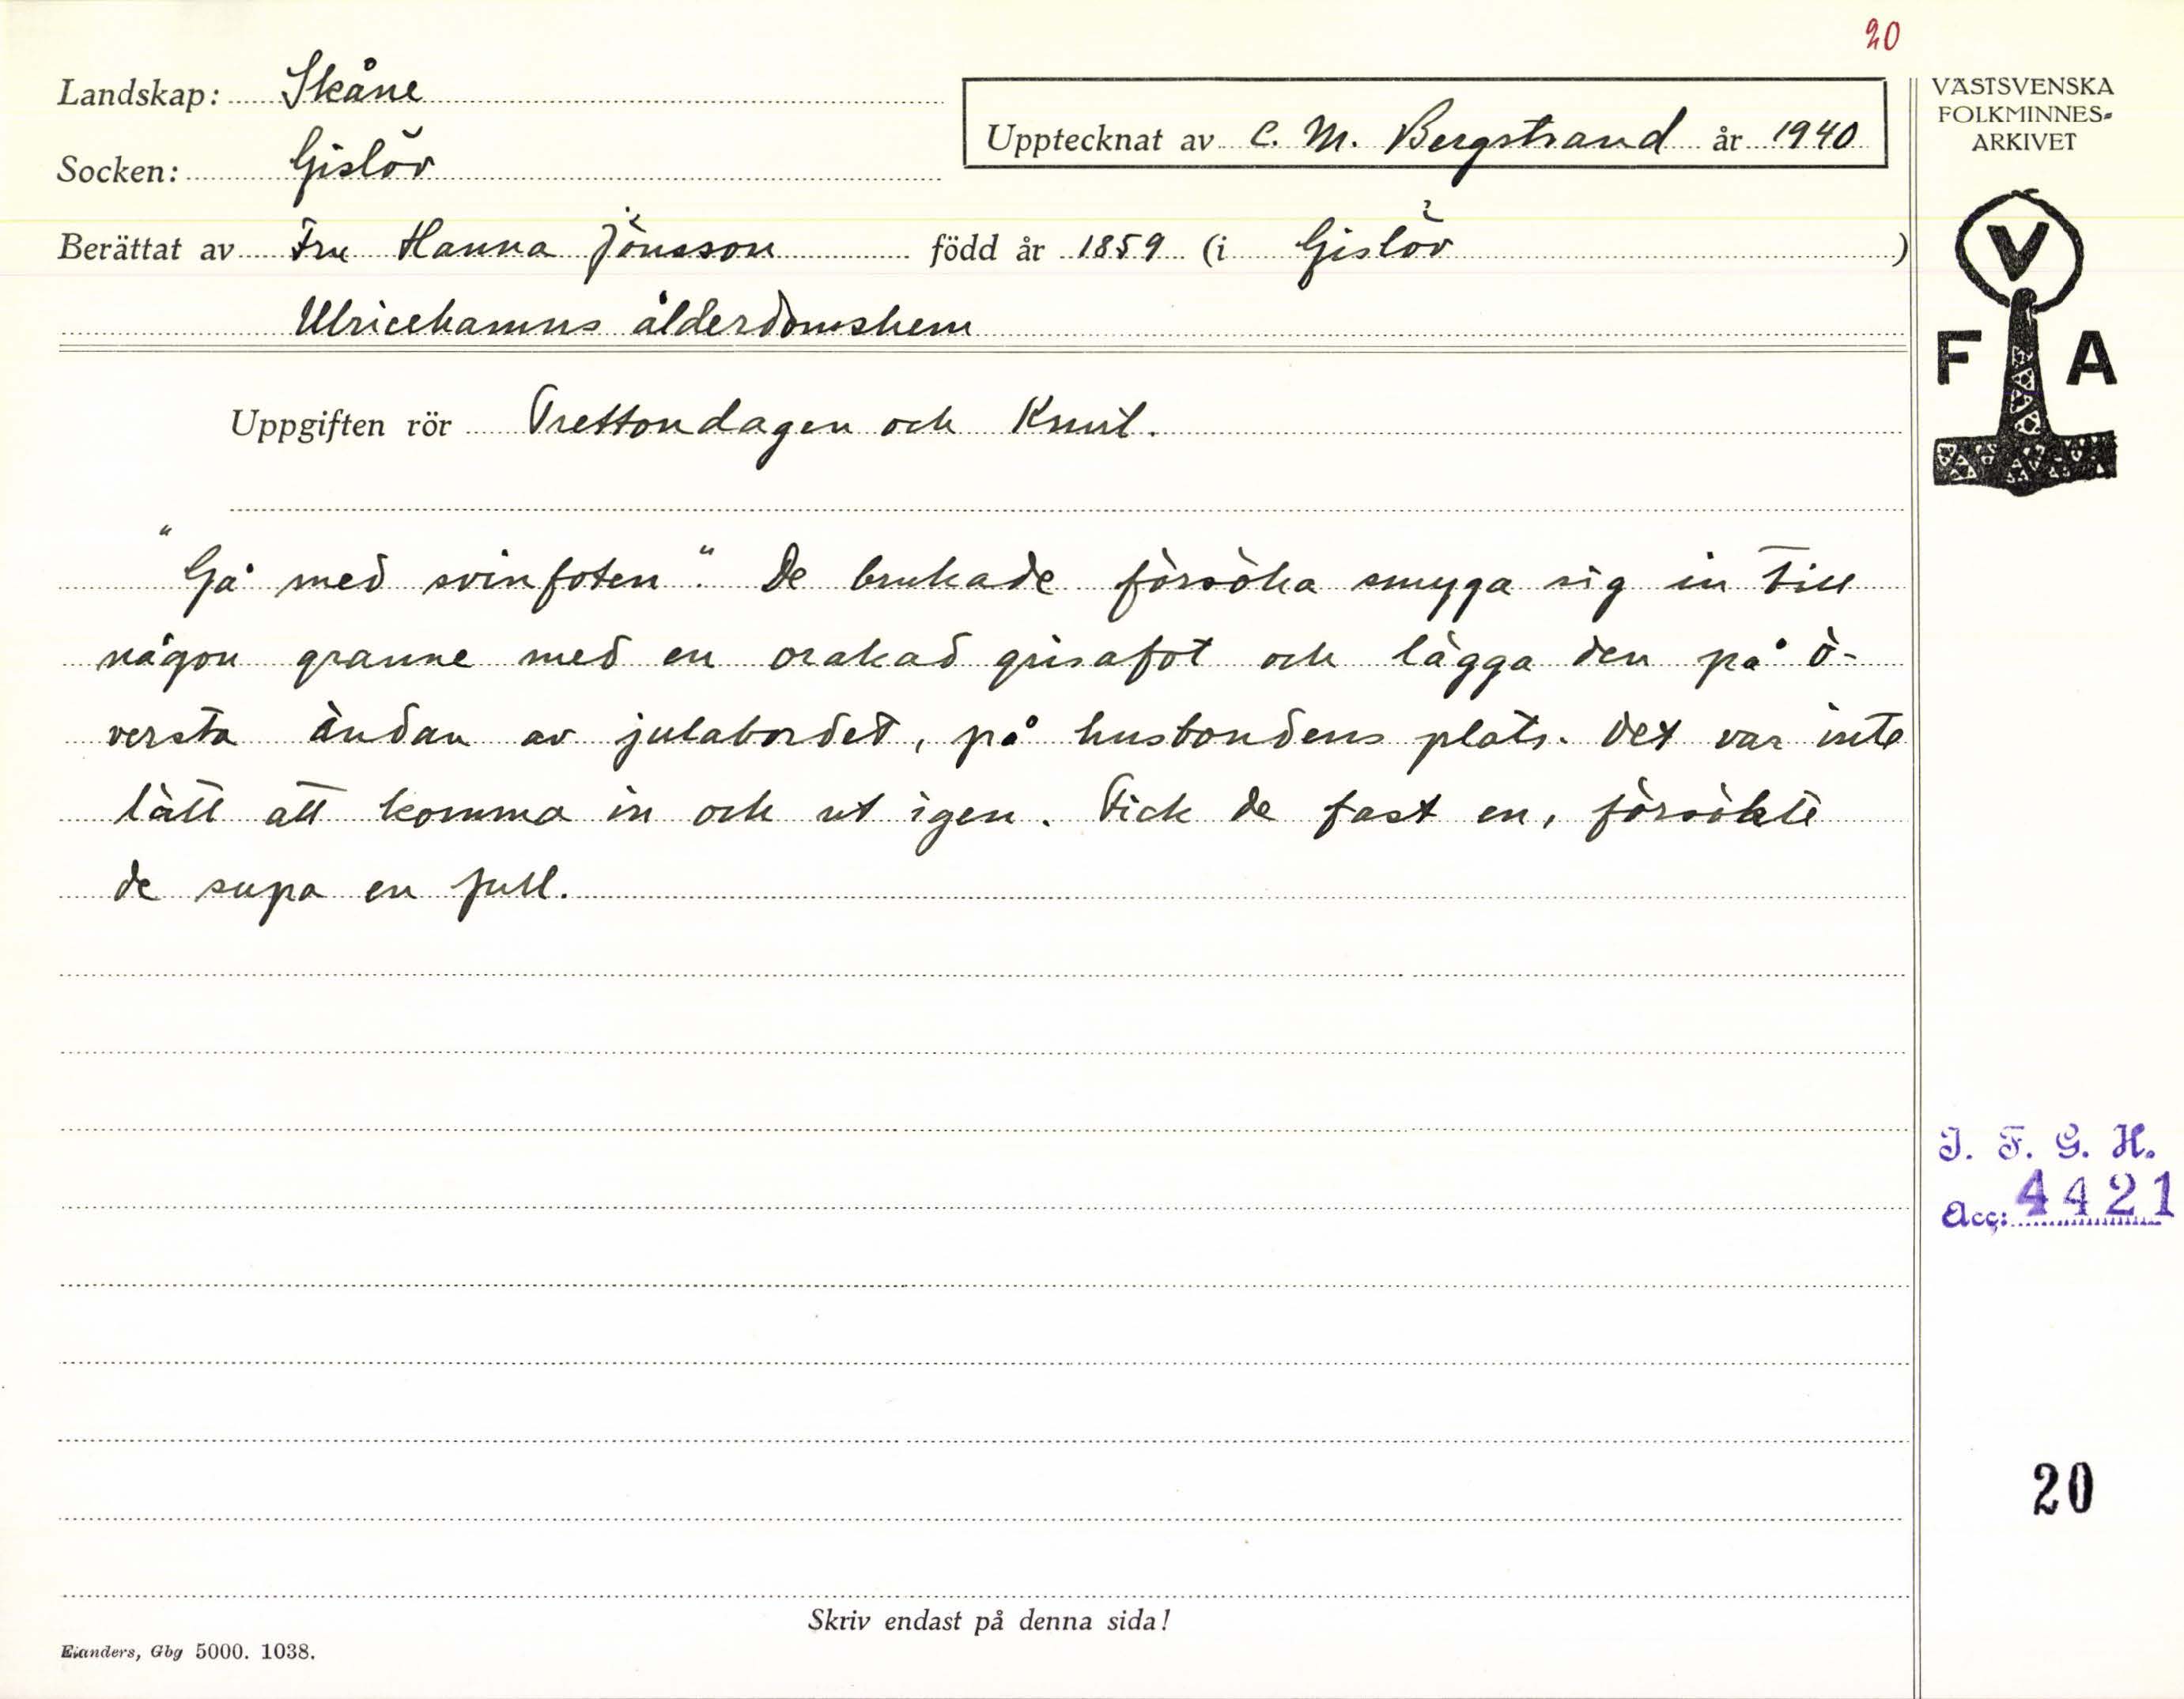 20
Landskap: Skåne
Socken: Gislöv
Upptecknat av C. M. Bergstrand år 1940
Berättat av Fru Hanna Jönsson född år 1859 (i Gislöv)
Ulricehamns ålderdomshem
Uppgiften rör Trettondagen och Knut.
"Gå med svinfoten". De brukade försöka smyga sig in till
någon granne med en orakad grisafot och lägga den på ö-
versta ändan av julabordet, på husbondens plats. Det var inte
lätt att komma in och ut igen. Fick de fast en, försökte
de supa en full.
Skriv endast på denna sida!
Elanders, Gbg 5000. 1038.
VÄSTSVENSKA
FOLKMINNES-
ARKIVET
V
F A
I. F. G. H.
Acc: 4421
20